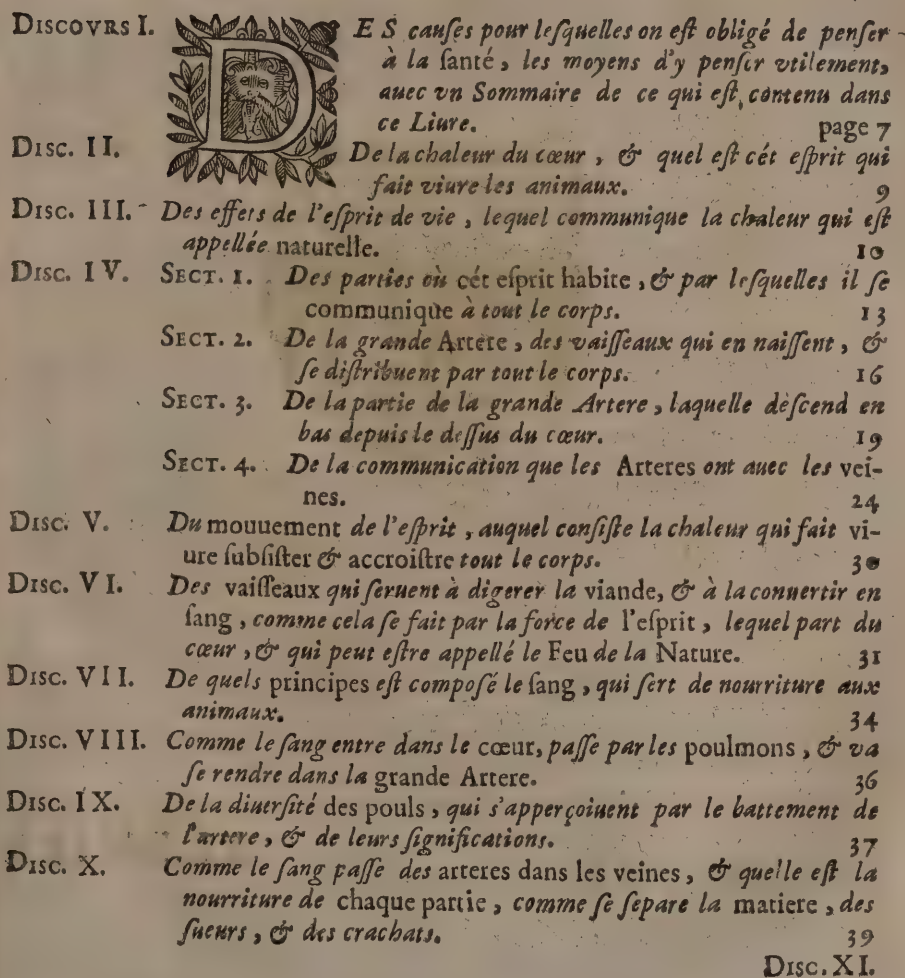 DISCOVRS I. DES causes pour lesquelles on est obligé de penser
à la santé, les moyens d'y penser vtilement,
auec vn Sommaire de ce qui est contenu dans
ce Liure. page 7
DISC. II. De la chaleur du cœur, & quel est cét esprit qui
fait viure les animaux. 9
DISC. III. Des effets de l'esprit de vie, lequel communique la chaleur qui est
appellée naturelle. 10
DISC. IV. SECT. 1. Des parties où cét esprit habite, & par lesquelles il se
communique à tout le corps. 13
SECT. 2. De la grande Artere, des vaisseaux qui en naissent, &
se distribuent par tout le corps. 16
SECT. 3. De la partie de la grande Artere, laquelle descend en
bas depuis le dessus du cœur. 19
SECT. 4. De la communication que les Arteres ont auec les vei-
nes. 24
DISC. V. Du mouuement de l'esprit, auquel consiste la chaleur qui fait vi-
ure subsister & accroistre tout le corps. 30
DISC. VI. Des vaisseaux qui seruent à digerer la viande, & à la conuertir en
sang, comme cela se fait par la force de l'esprit, lequel part du
cœur, & qui peut estre appellé le Feu de la Nature. 31
DISC. VII. De quels principes est composé le sang, qui sert de nourriture aux
animaux. 34
DISC. VIII. Comme le sang entre dans le cœur, passe par les poulmons, & va
se rendre dans la grande Artere. 36
DISC. IX. De la diuersité des pouls, qui s'apperçoiuent par le battement de
l'artere, & de leurs significations. 37
DISC. X. Comme le sang passe des arteres dans les veines, & quelle est la
nourriture de chaque partie, comme se separe la matiere, des
sueurs, & des crachats. 39
DISC. XI.